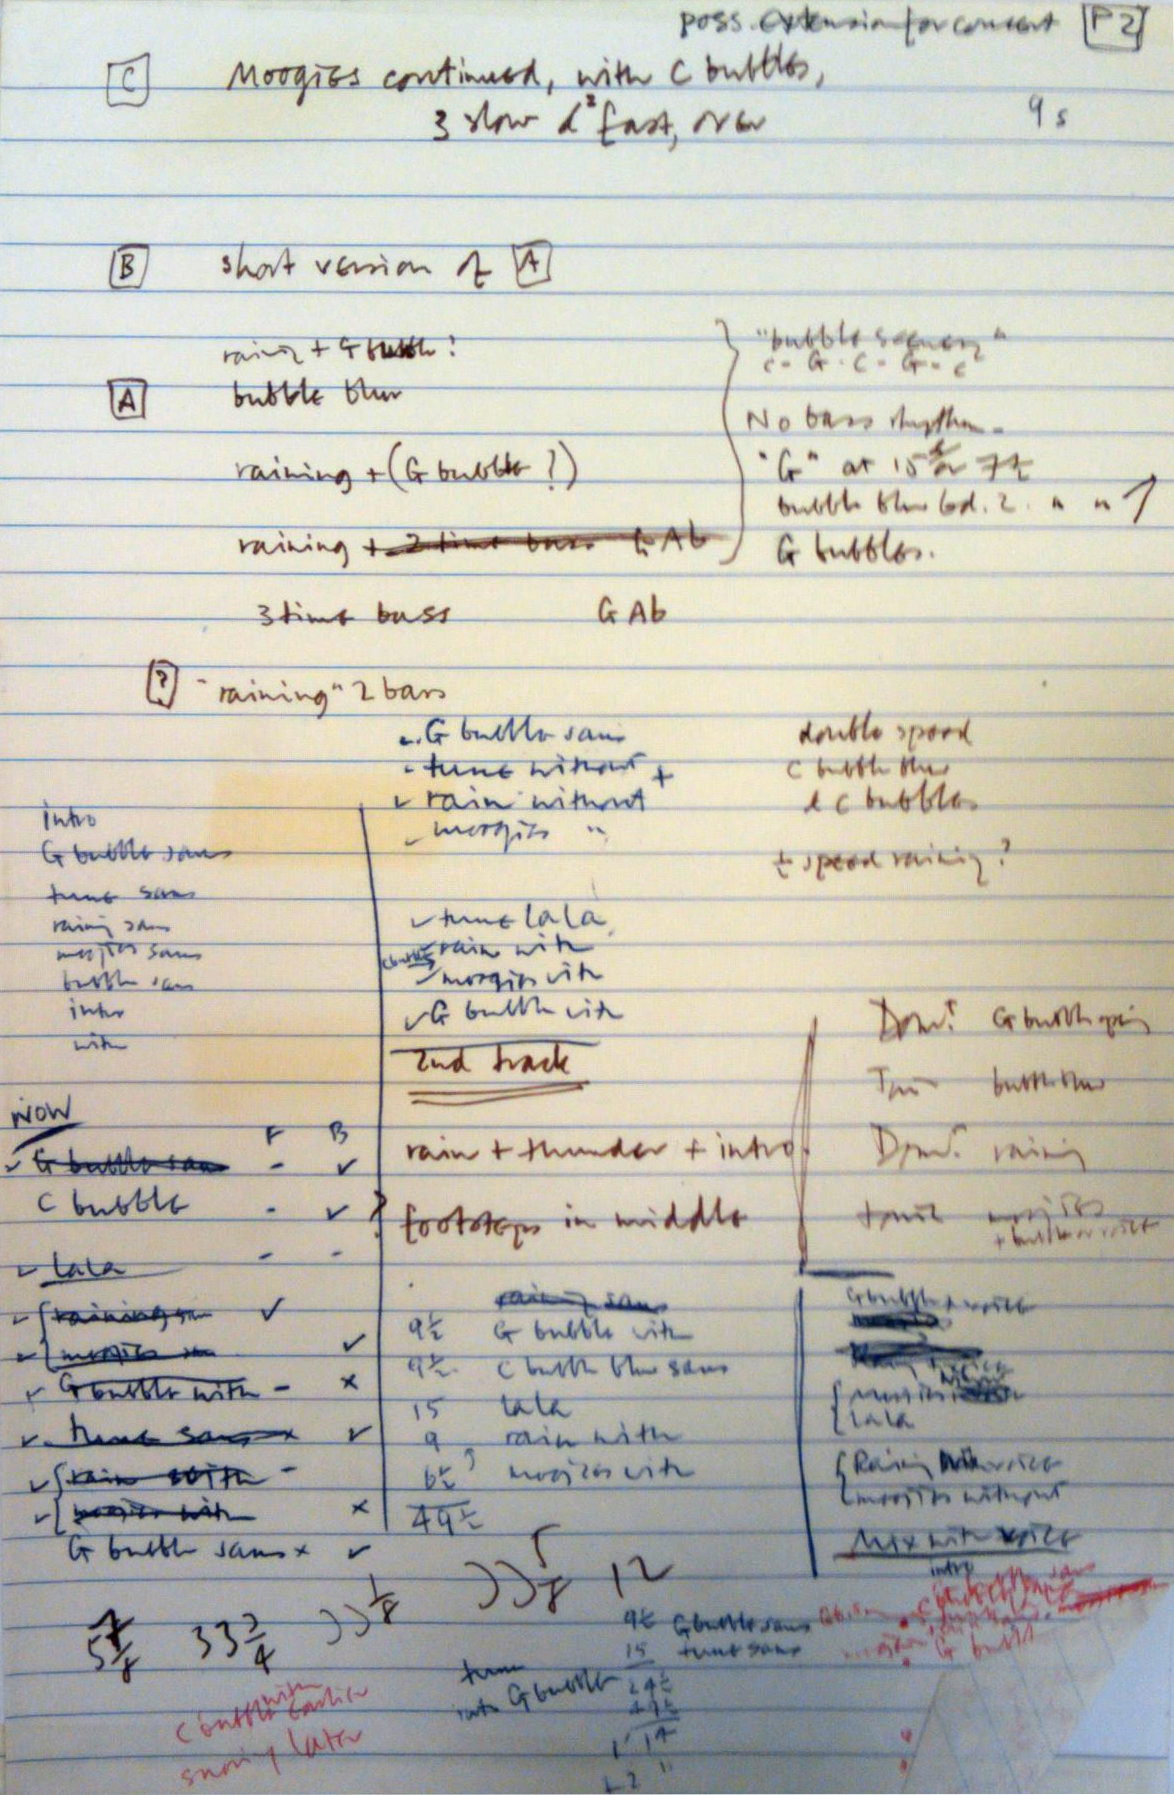 poss. extension for concert P2
C Moogies continued, with C bubbles,
3 slow & 2 fast, over 9s
B short version of A
raining + G bubble?
A bubble blur
raining + (G bubble?)
raining + 2 time bass G Ab
3 time bass G Ab
"bubble sequence"
C - G - C - G - C
No bass rhythm -
"G" at 15 or 7½
bubble blur
G bubbles.
? "raining" 2 bars
G bubble sans
tune without +
rain without
moogies "
double speed
C bubble blur
& C bubbles
½ speed raining?
intro
G bubble sans
tune sans
raining sans
moogies sans
bubble sans
intro
with
tune lala
rain with
moogies with
G bubble with
2nd track
rain + thunder + intro
? footsteps in middle
Dom. G bubble
Ton bubble blur
Dom. raining
tonic moogies
NOW
F B
G bubble sans - ✓
C bubble - ✓
lala - -
raining san ✓
moogies ✓
G bubble with - x
tune sans x ✓
rain with -
moogies with x
G bubble sans x ✓
raining sans
9½ G bubble with
9½ C bubble blur sans
15 lala
9 rain with
6½? moogies with
49½
G bubble + voice
moogies
lala
Raining with voice
moogies without
Mix with voice
intro
33 3/4
33 1/8
33 5/8
12
9½ G bubble sans
15 tune sans
24½
49½
1'14
tune
into G bubble
C bubble with earlier
snoring later
G bubble